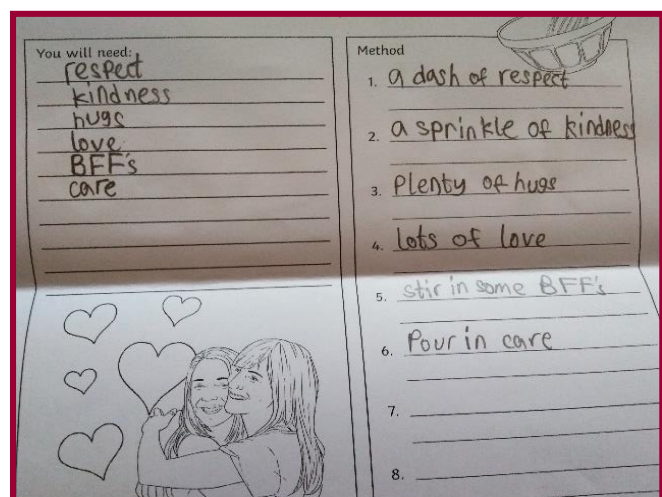 You will need:
respect
kindness
hugs
love
BFF's
care
Method
1. a dash of respect
2. a sprinkle of kindness
3. Plenty of hugs
4. lots of love
5. stir in some BFF's
6. Pour in care
7.
8.